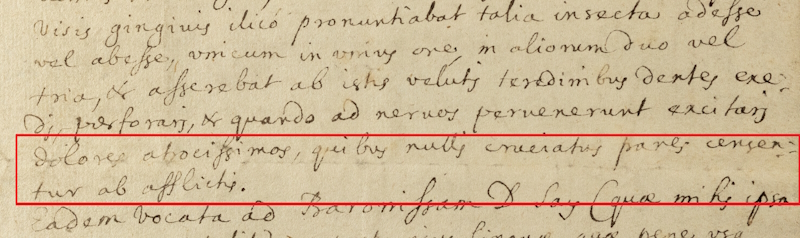 visis gingivis ilicò pronuntiabat talia insecta adesse
vel abesse, unicum in unius ore, in aliorum duo vel
tria, & asserebat ab istis velutj teredinibus dentes exe-
dj, perforarj, & quando ad nervos pervenerunt excitarj
dolores atrocissimos, quibus nullj cruciatus pares censen-
tur ab afflictis.
eadem vocata ad Baronissam D Say (quæ mihi ipsa